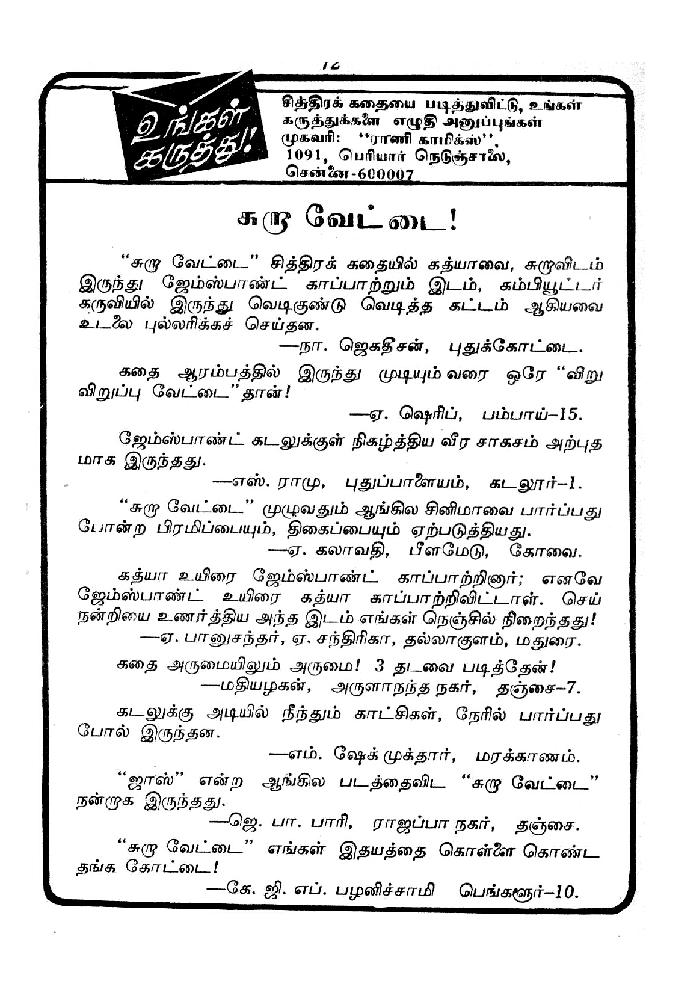 12
உங்கள்
கருத்து!
சித்திரக் கதையை படித்துவிட்டு, உங்கள்
கருத்துக்களை எழுதி அனுப்புங்கள்
முகவரி: "ராணி காமிக்ஸ்",
1091, பெரியார் நெடுஞ்சாலை,
சென்னை-600007
சுறா வேட்டை!
"சுறா வேட்டை" சித்திரக் கதையில் கத்யாவை, சுறாவிடம்
இருந்து ஜேம்ஸ்பாண்ட் காப்பாற்றும் இடம், கம்பியூட்டர்
கருவியில் இருந்து வெடிகுண்டு வெடித்த கட்டம் ஆகியவை
உடலை புல்லரிக்கச் செய்தன.
—நா. ஜெகதீசன், புதுக்கோட்டை.
கதை ஆரம்பத்தில் இருந்து முடியும் வரை ஒரே "விறு
விறுப்பு வேட்டை"தான்!
—ஏ. ஷெரிப், பம்பாய்-15.
ஜேம்ஸ்பாண்ட் கடலுக்குள் நிகழ்த்திய வீர சாகசம் அற்புத
மாக இருந்தது.
—எஸ். ராமு, புதுப்பாளையம், கடலூர்-1.
"சுறா வேட்டை" முழுவதும் ஆங்கில சினிமாவை பார்ப்பது
போன்ற பிரமிப்பையும், திகைப்பையும் ஏற்படுத்தியது.
—ஏ. கலாவதி, பீளமேடு, கோவை.
கத்யா உயிரை ஜேம்ஸ்பாண்ட் காப்பாற்றினார்; எனவே
ஜேம்ஸ்பாண்ட் உயிரை கத்யா காப்பாற்றிவிட்டாள். செய்
நன்றியை உணர்த்திய அந்த இடம் எங்கள் நெஞ்சில் நிறைந்தது!
—ஏ. பானுசந்தர், ஏ. சந்திரிகா, தல்லாகுளம், மதுரை.
கதை அருமையிலும் அருமை! 3 தடவை படித்தேன்!
—மதியழகன், அருளாநந்த நகர், தஞ்சை-7.
கடலுக்கு அடியில் நீந்தும் காட்சிகள், நேரில் பார்ப்பது
போல் இருந்தன.
—எம். ஷேக் முக்தார், மரக்காணம்.
"ஜாஸ்" என்ற ஆங்கில படத்தைவிட "சுறா வேட்டை"
நன்றாக இருந்தது.
—ஜெ. பா. பாரி, ராஜப்பா நகர், தஞ்சை.
"சுறா வேட்டை" எங்கள் இதயத்தை கொள்ளை கொண்ட
தங்க கோட்டை!
—கே. ஜி. எப். பழனிச்சாமி பெங்களூர்-10.